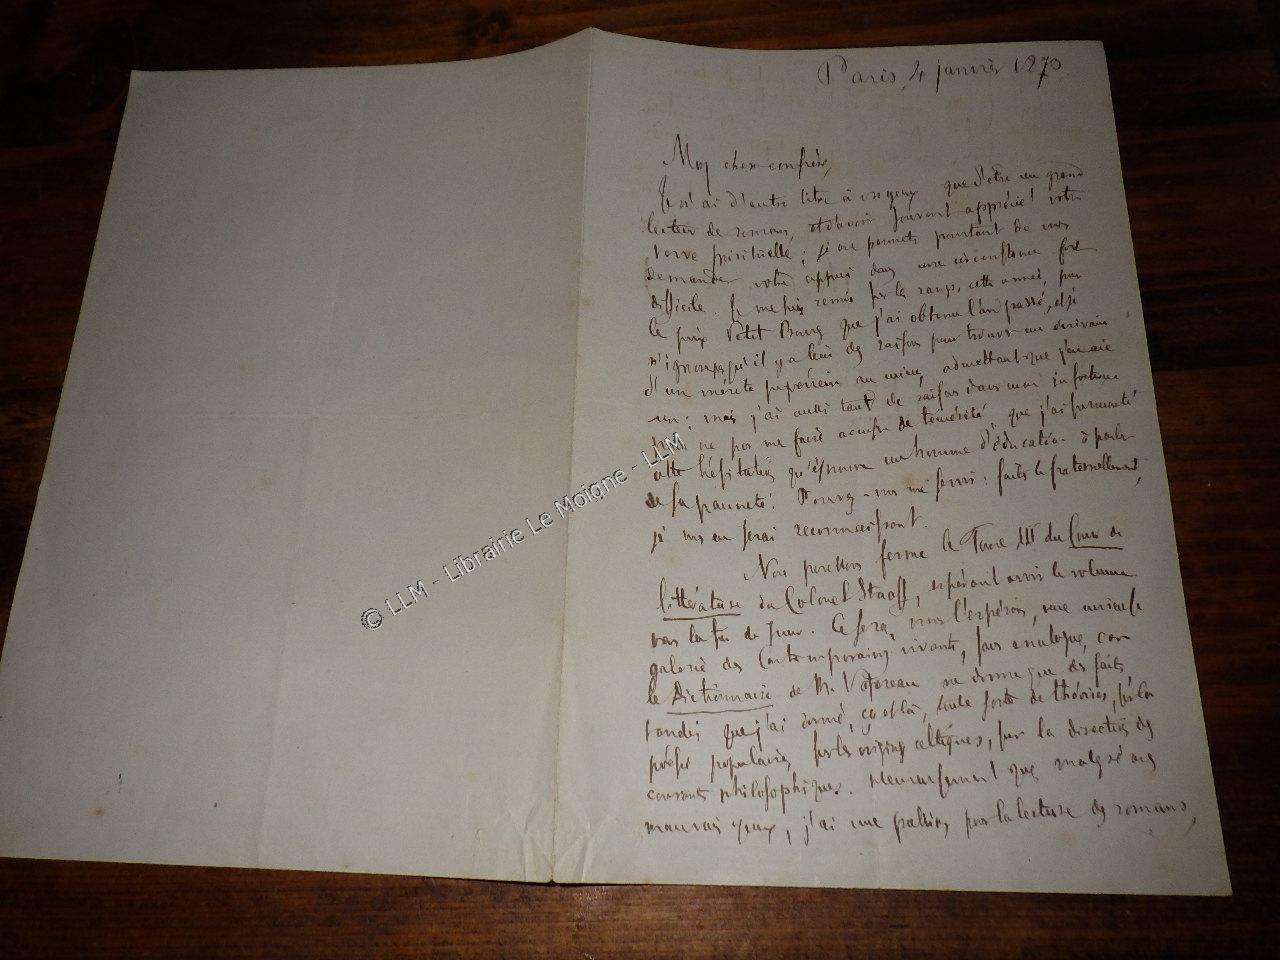 Paris, 4 janvier 1870
Mon cher confrère,
Je n'ai d'autre titre à vos yeux que d'être un grand
lecteur de romans, et d'avoir souvent apprécié votre
verve spirituelle ; je me permets pourtant de vous
demander votre appui dans une circonstance fort
difficile. Je me suis remis sur les rangs, cette année, pour
le prix Petit Bourg que j'ai obtenu l'an passé, et je
n'ignore pas qu'il y a bien des raisons pour trouver un écrivain
d'un mérite supérieur au mien, admettant que j'en aie
un ; mais j'ai aussi tant de raisons dans mon infortune
pour ne pas me faire accuser de témérité que j'ai surmonté
cette hésitation qu'éprouve un homme d'éducation à parler
de sa pauvreté. Pouvez-vous me servir : faites le fraternellement,
je vous en serai reconnaissant.
Nous poussons ferme le Tome III du Cours de
littérature du Colonel Staaff, espérant avoir le volume
vers la fin de Juin. Ce sera, nous l'espérons, une curieuse
galerie des Contemporains vivants, sans analogue, car
le Dictionnaire de M. Vapereau ne donne que des faits
tandis que j'ai donné, çà et là, toute sorte de théories, sur la
poésie populaire, sur les origines celtiques, sur la direction des
courants philosophiques. Heureusement que malgré mes
mauvais yeux, j'ai une passion pour la lecture des romans,
© LLM - Librairie Le Moigne - LLM